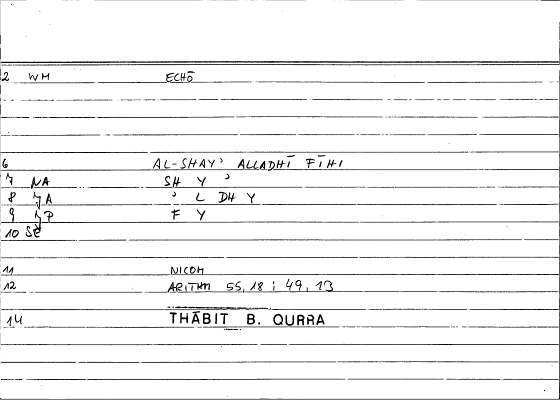 2 WM ECHŌ
6 AL-SHAYʾ ALLADHĪ FĪHI
7 NA SH Y ʾ
8 ZA ʾ L DH Y
9 ZP F Y
10 SE
11 NICOM
12 ARITHM 55,18 ; 49,13
14 THĀBIT B. QURRA